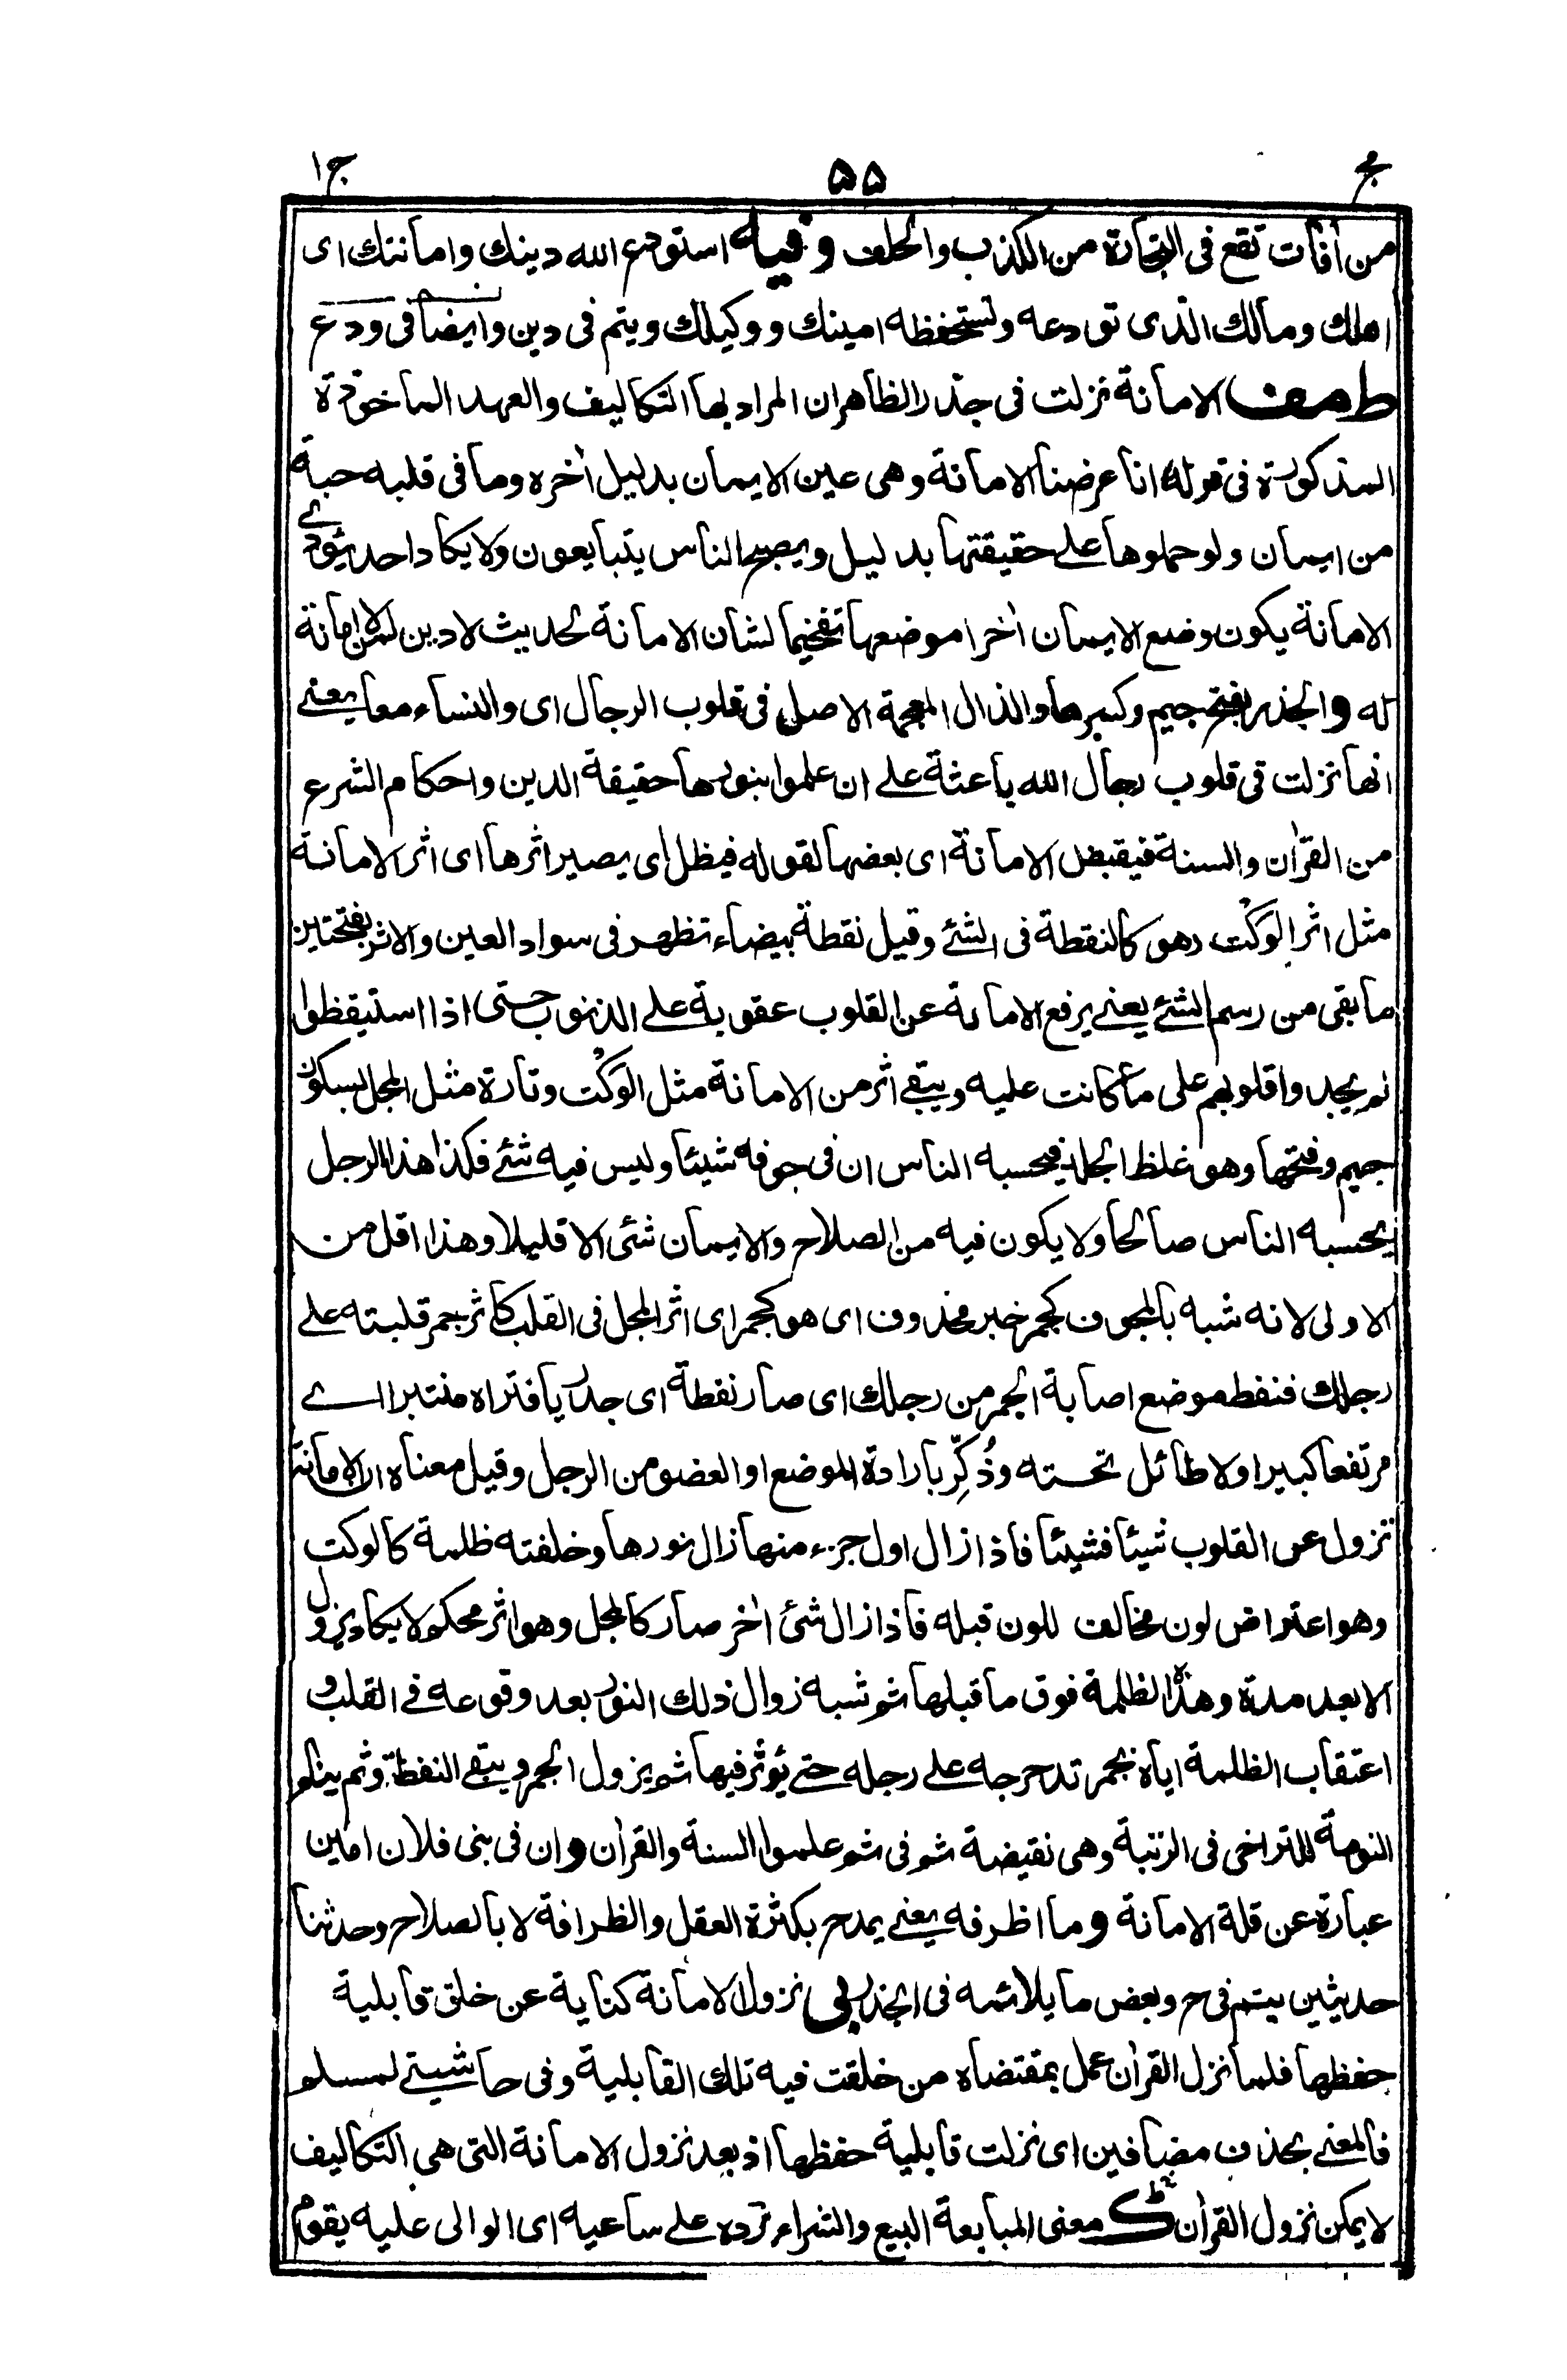 مج ٥٥ ج ١
من أفات تقع فى التجارة من الكذب والحلف وفيه استودع الله دينك وامانتك اى
اهلك ومالك الذى تودعه وتستحفظه امينك ووكيلك ويتم فى دين وايضا فى ودع
ط هف الامانة نزلت فى جذر الظاهر ان المراد بها التكاليف والعهد الماخوذة
المذكورة فى قوله انا عرضنا الامانة وهى عين الايمان بدليل اٰخره وما فى قلبه حبة
من ايمان ولو حملوها على حقيقتها بدليل ويصبح الناس يتبايعون ولا يكاد احد يئودى
الامانة يكون وضع الايمان اٰخرا موضعها تفخيما لشان الامانة لحديث لا دين لمن لا امانة
له والجذر بفتح جيم وكسرها والذال المعجمة الاصل فى قلوب الرجال اى والنساء معا يعنے
انها نزلت فى قلوب رجال الله باعثة على ان علموا بنورها حقيقة الدين واحكام الشرع
من القراٰن والسنة فيقبض الامانة اى بعضها لقوله فيظل اى يصير اثرها اى اثر الامانة
مثل اثر الوَكْت وهو كالنقطة فى الشئ وقيل نقطة بيضاء تظهر فى سواد العين والاثر بفتحتين
ما بقى من رسم الشئ يعنے يرفع الامانة عن القلوب عقوبة على الذنوب حتى اذا استيقظوا
لم يجدوا قلوبهم على ما كانت عليه ويبقے اثر من الامانة مثل الوَكْت وتارة مثل المجل بسكون
جيم وفتحها وهو غلظ الجلد فيحسبه الناس ان فى جوفه شيئا وليس فيه شئ فكذا هذا الرجل
يحسبه الناس صالحا ولا يكون فيه من الصلاح والايمان شئى الا قليلا وهذا اقل من
الاولى لانه شبه بالمجوف كجمر خبر محذوف اى هو كجمر اى اثر المجل فى القلب كاثر جمر قلبته على
رجلك فنفط موضع اصابة الجمر من رجلك اى صار نفطة اى جدريا فتراه منتبرا اے
مرتفعا كبيرا ولا طائل تحته وذُكِّر بارادة الموضع او العضو من الرجل وقيل معناه ان الامانة
تزول عن القلوب شيئا فشيئا فاذا زال اول جزء منها زال نورها وخلفته ظلمة كالوكت
وهو اعتراض لون مخالف للون قبله فاذا زال شئ اٰخر صار كالمجل وهو اثر محكم لا يكاد يزول
الا بعد مدة وهذه الظلمة فوق ما قبلها ثم شبه زوال ذلك النور بعد وقوعه فى القلب و
اعتقاب الظلمة اياه بجمر تدحرجه على رجله حتى يؤثر فيها ثم يزول الجمر ويبقے النفطة وثم ينام
النومة للتراخى فى الرتبة وهى نقيضة ثم فى ثم علموا السنة والقراٰن وان فى بنى فلان امين
عبارة عن قلة الامانة وما اظرفه يعنے يمدح بكثرة العقل والظرافة لا بالصلاح وحدثنا
حديثين يتم فى ح وبعض ما يلائمه فى الجذر نزول الامانة كناية عن خلق قابلية
حفظها فلما نزل القراٰن عمل بمقتضاه من خلقت فيه تلك القابلية وفى حاشيتے لمسلم
فالمعنے بحذف مضافين اى نزلت قابلية حفظها اذ بعد نزول الامانة التى هى التكاليف
لا يمكن نزول القراٰن ك معنى المبايعة البيع والشراء ترده على ساعيه اى الوالى عليه يقوم